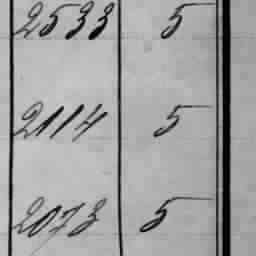 2533 5
2114 5
2073 5